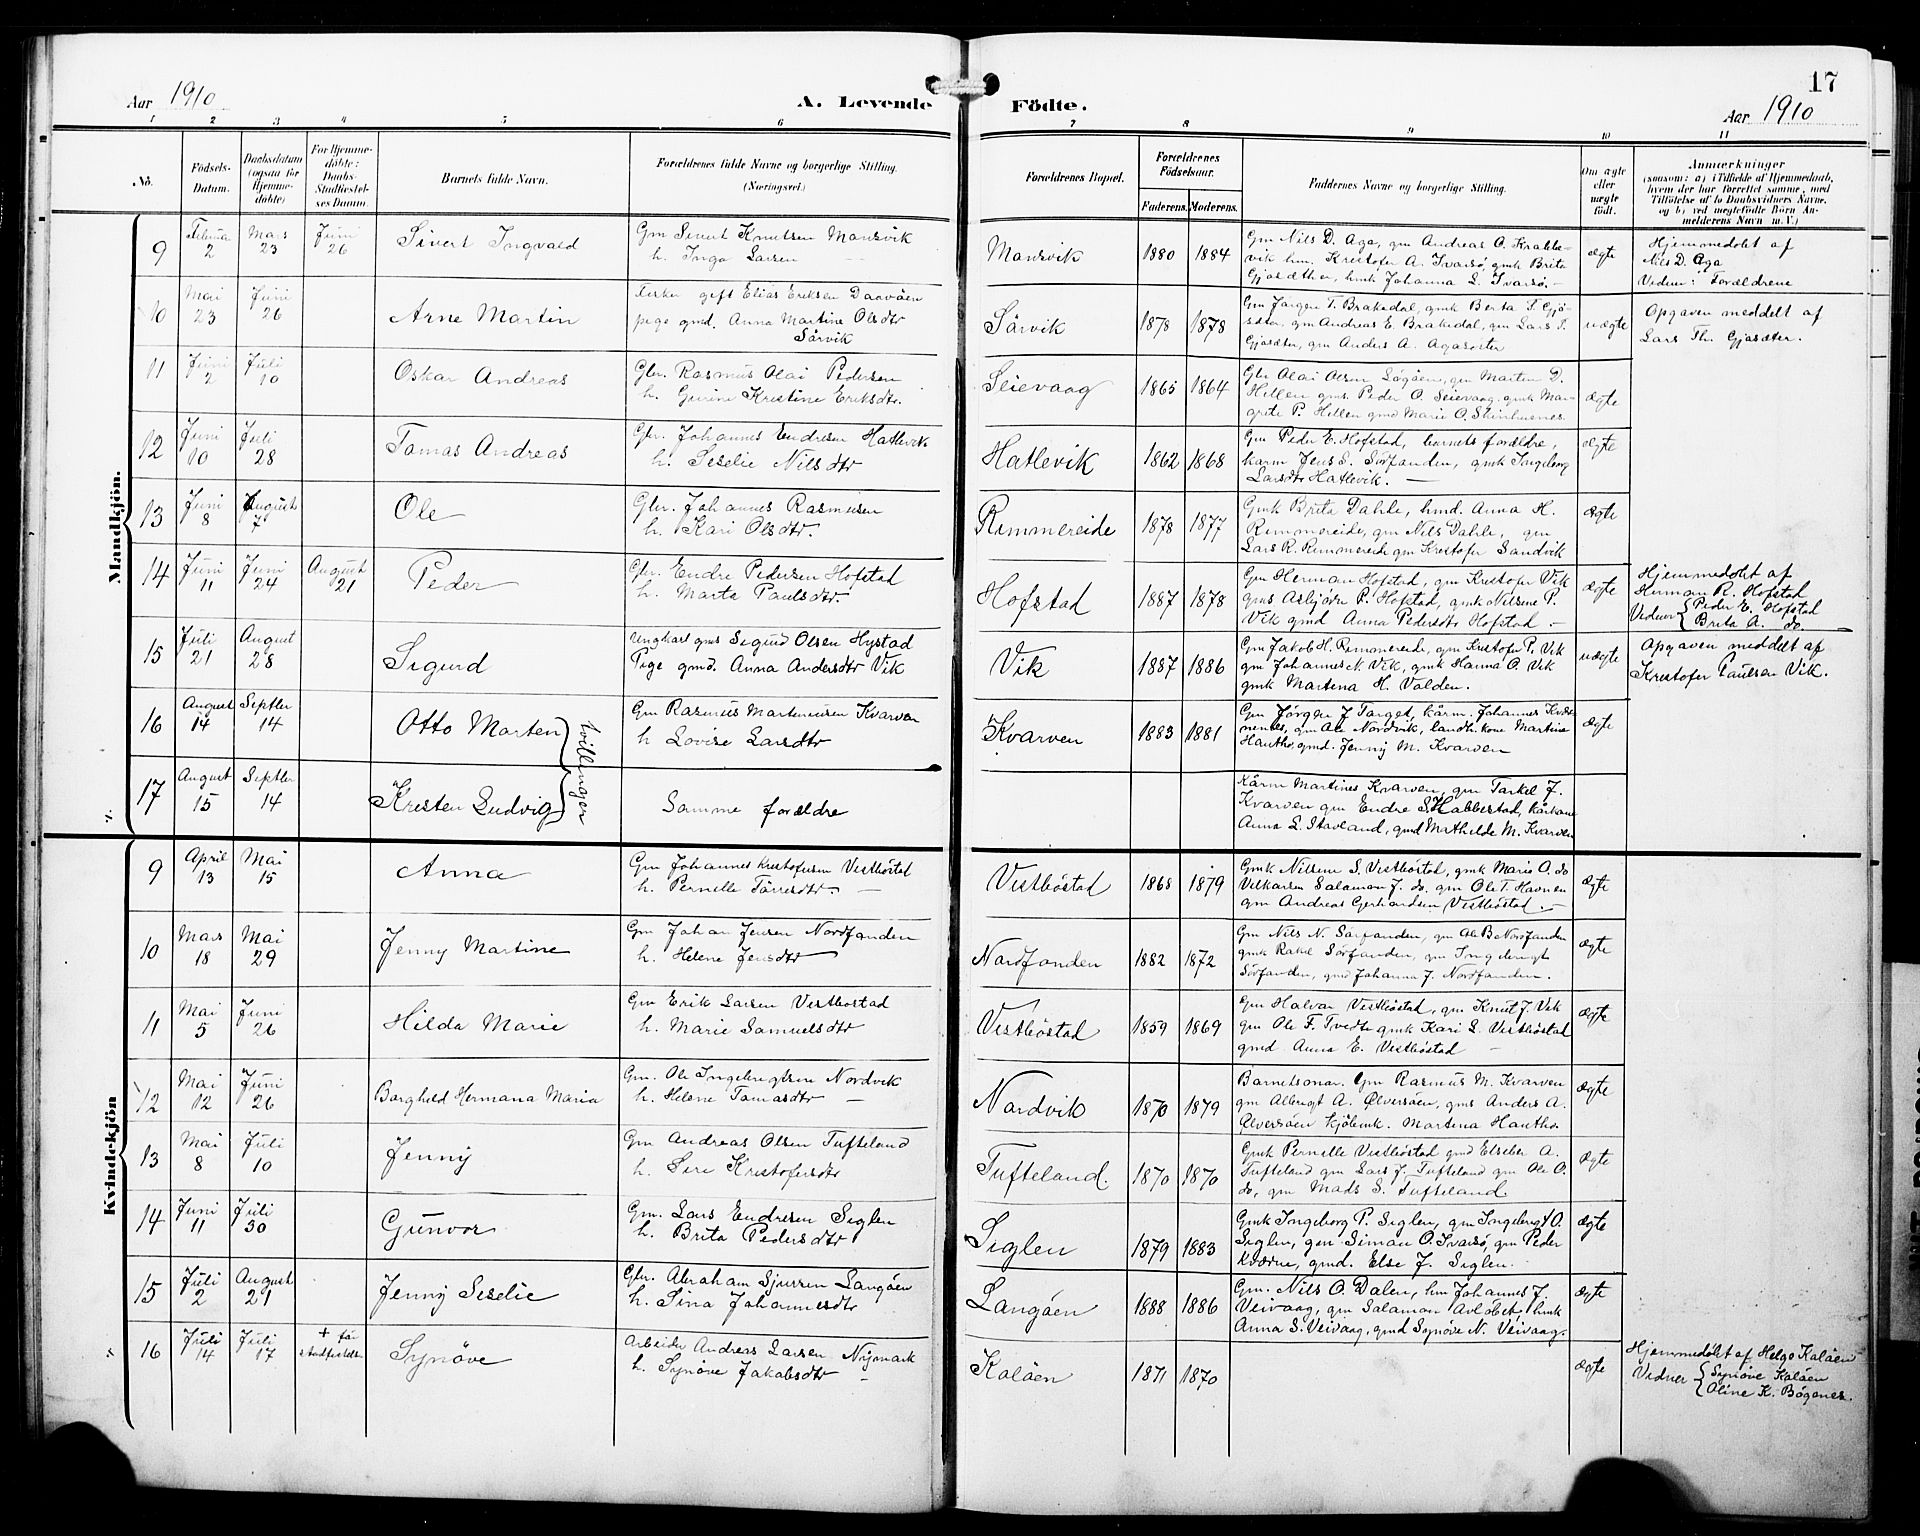 Aar 1910
A. Levende Födte.
17
Aar 1910
1 2 3 4 5 6 7 8 9 10 11
No.
Födsels-Datum.
Daabsdatum (ogsaa for Hjemme-döbte)
For Hjemme-döbte: Daabs-Stadfæstel-ses Datum.
Barnets fulde Navn.
Forældrenes fulde Navne og borgerlige Stilling. (Næringsvei.)
Forældrenes Bopæl.
Forældrenes Födselsaar.
Faderens. Moderens.
Faddernes Navne og borgerlige Stilling.
Om ægte eller uægte födt.
Anmærkninger
(saasom: a) i Tilfælde af Hjemmedaab,
hvem der har forrettet samme, med
Tilföielse af to Daabsvidners Navne,
og b) ved uægtefödte Börn An-
melderens Navn m. V.)
Mandkjön.
9 Februar 2 Mars 23 Juni 26 Sivert Ingvald
Gm Sivert Knutsen Mansvik
h. Inga Larsen
Mansvik 1880 1884
Gm Nils D. Aga, gm Andreas O. Krabbe-
vik hm. Kristofer A. Ivarsö gmk Brita
Gjøsæther, hmk Johanna L. Ivarsö.
ægte
Hjemmedøbt af
Nils D. Aga
Vidne: Forældrene
10 Mai 23 Juni 26 Arne Martin
Fisker gift Elias Eriksen Daavøen
pige gmd. Anna Martine Olsdtr
Sørvik
Sørvik 1878 1878
Gm Jørgen T. Brakedal, gmk Berta S. Gjø-
sæter, gm Andreas E. Brakedal, gm Lars T.
Gjøsæter, gm Anders A. Agasøster
uægte
Opgaven meddelt af
Lars Th. Gjøsæter.
11 Juni 2 Juli 10 Oskar Andreas
Gbr. Rasmus Olai Pedersen
h. Gurine Kristine Eriksdtr.
Seievaag 1865 1864
Gbr Olai Olsen Løgøen, gm Marten D.
Hillen gms. Peder O. Seievaag, gmk Mar-
grete P. Hillen gmd Marie O. Steinhusnes.
ægte
12 Juni 10 Juli 28 Tomas Andreas
Gbr. Johannes Endresen Hatlevik
h. Seselie Nilsdtr
Hatlevik 1862 1868
Gm Peder E. Hofstad, barnets forældre,
kårm Jens S. Sörfonden, gmk Ingeborg
Larsdtr Hatlevik. —
ægte
13 Juni 8 August 7 Ole
Gbr. Johannes Rasmusen
h. Kari Olsdtr.
Remmereide 1878 1877
Gmk Brita Dahle, hmd. Anna H.
Remmereide, gm Nils Dahle, gm
Lars R. Remmereide gm Kristofer Sandvik
ægte
14 Juni 11 Juni 24 August 21 Peder
Gbr. Endre Pedersen Hofstad
h. Marta Paulsdtr.
Hofstad 1887 1878
Gm Herman Hofstad, gm Kristofer Vik
gms Asbjørn P. Hofstad, gmk Nilsine P.
Vik gmd Anna Pedersdtr Hofstad. —
ægte
Hjemmedøbt af
Herman R. Hofstad
Vidner { Peder E. Hofstad
Brita A. do
15 Juli 21 August 28 Sigurd
Ungkarl gms Sigurd Olsen Hystad
Pige gmd. Anna Andersdtr Vik
Vik 1887 1886
Gm Jakob H. Remmereide, gm Kristofer P. Vik
gm Johannes K. Vik, gmk Hanna O. Vik
gmk Martena H. Valden.
uægte
Opgaven meddelt af
Kristofer Paulsen Vik.
16 August 14 Septbr 14 Otto Morten
Gm Rasmus Martinusen Kvarven
h Lovise Larsdtr
Kvarven 1883 1881
Gm Jørgen J Torget, kårm. Johannes Kves-
menes, gm Ole Nordvik, Landh. kone Martine
Hantho, gmd. Jenny M. Kvarven
ægte
tvillinger
17 August 15 Septbr 14 Kristen Ludvig
Samme forældre
Kårm Martines Kvarven, gm Torkel J.
Kvarven gm Endre S. Habbestad, kårkone
Anna L. Stavland, gmd Mathilde M. Kvarven
Kvindekjön
9 April 13 Mai 15 Anna
Gm Johannes Kristofersen Vestbøstad
h. Pernille Tørresdtr. —
Vestbøstad 1868 1879
Gmk Nilsine S. Vestbøstad, gmk Marie O. do
Vilkarsen Salamon J. do. gm Ole T. Havnen
gm Andreas Gerhardsen Vestbøstad. —
ægte
10 Mars 18 Mai 29 Jenny Martine
Gm Johan Jensen Nordfonden
h. Helene Jensdtr
Nordfonden 1882 1872
Gm Nils N. Sørfonden, gm Ole B. Nordfonden
gmk Rakel Sørfonden, gm Ingebrigt
Sørfonden, gmd Johanna J. Nordfonden.
ægte
11 Mai 5 Juni 26 Hilda Marie
Gm Erik Larsen Vestbøstad
h. Marie Samuelsdtr
Vestbøstad 1859 1869
Gm Halvor Vestbøstad, gm Knut J. Vik
gm Ole F. Tvedte gmk Kari L. Vestbøstad
gmd Anna E. Vestbøstad —
ægte
12 Mai 12 Juni 26 Borghild Hermana Maria
Gm. Ole Ingebrigtsen Nordvik
h. Helene Tomasdtr —
Nordvik 1870 1879
Barnets mor. Gm Rasmus M. Kvarven
gm Albregt A. Ølversøen, gms Anders A.
Ølversøen Kjøbmk. Martena Hantho.
ægte
13 Mai 8 Juli 10 Jenny
Gm Andreas Olsen Tufteland
h. Sire Kristofersdtr
Tufteland. 1870 1870
Gmk Pernille Vestbøstad gmd Elseber A.
Tufteland gm Lars J. Tufteland gm Ole O.
do, gm Mads S. Tufteland
ægte
14 Juni 11 Juli 30 Gunvor
Gm. Lars Endresen Siglen
h. Brita Pedersdtr
Siglen 1879 1883
Gmk Ingeborg P. Siglen, gm Ingebrigt O.
Siglen, gm Simon O. Ivarsö, gm Peder
Kværne, gmd. Else J. Siglen.
ægte
15 Juli 2 August 21 Jenny Seselie
Gbr. Abraham Sjursen Langøen
h. Sina Johannesdtr
Langøen 1888 1886
Gm. Nils O. Dalen, hm Johannes J.
Veivaag, gm Salamon hmk
Anna S. Veivaag, gmd Synøve N. Veivaag.
ægte
16 Juli 14 Juli 17 + før stadfæstelse Synøve
Arbeider Andreas Larsen Nymark
h. Synøve Jakobsdtr —
Kaløen 1871 1870
ægte
Hjemmedøbt af Helga Kaløen
Vidner { Synøve Kaløen
Oline K. Bøgenes.